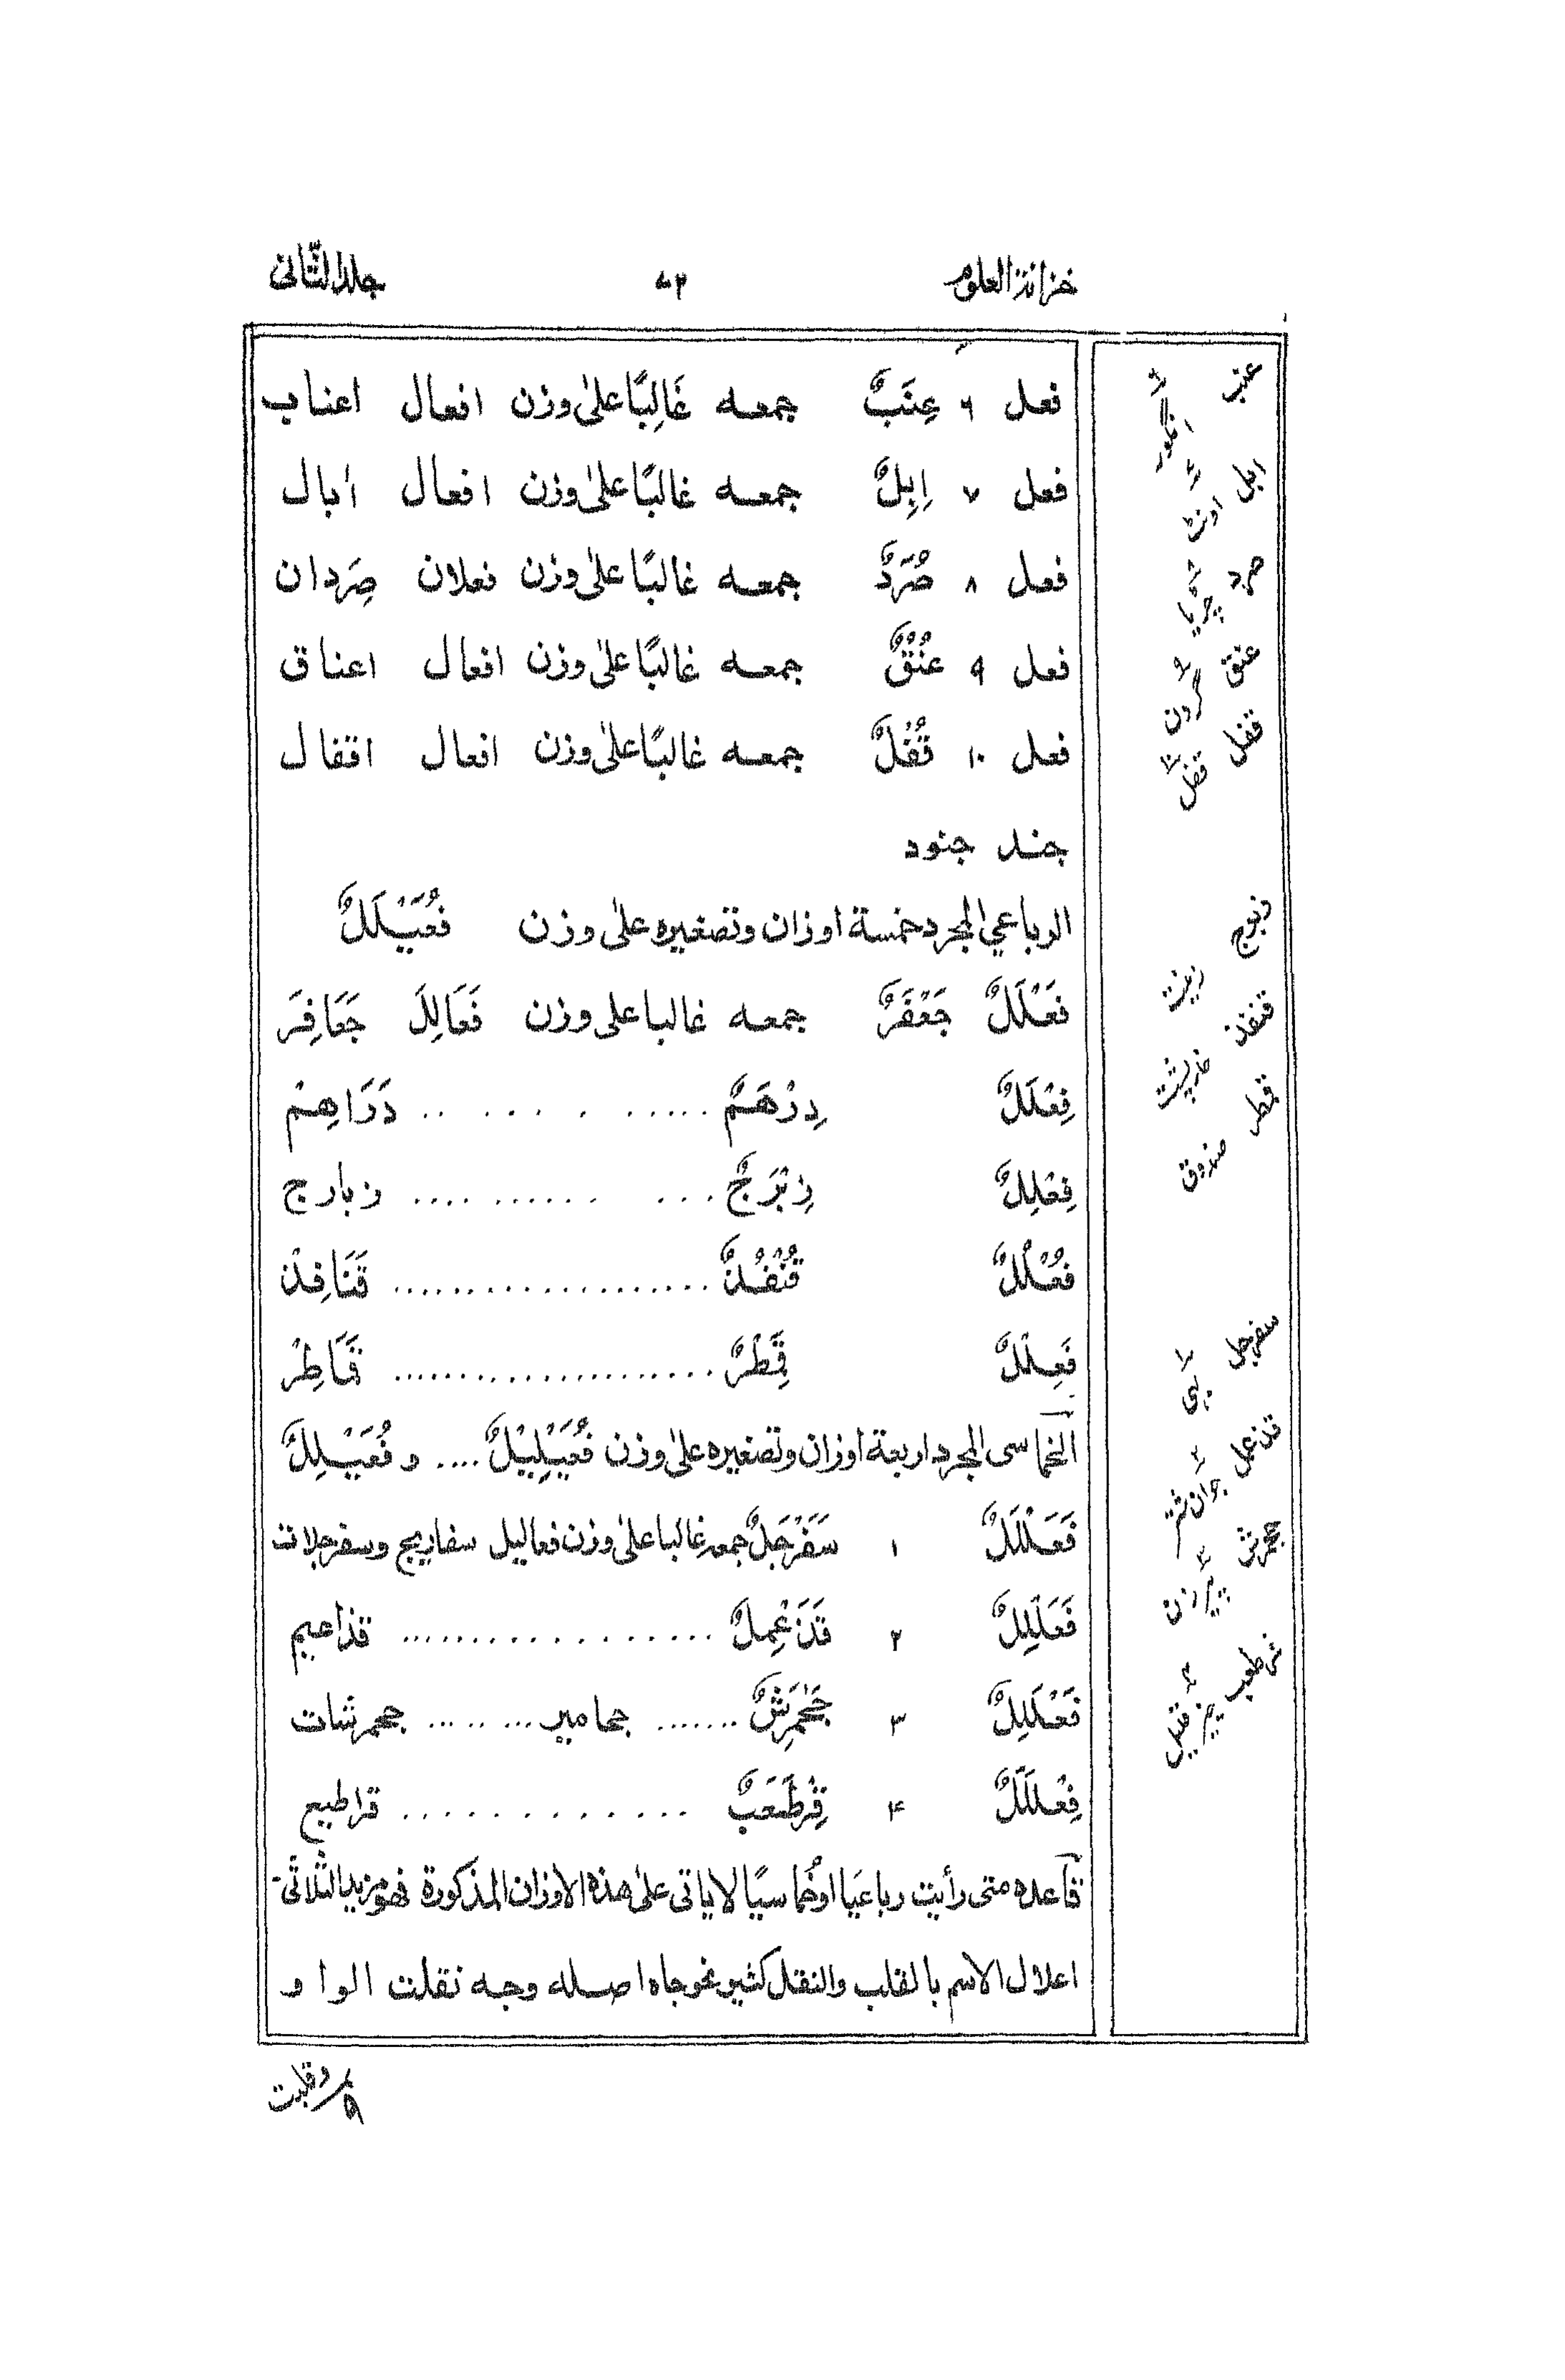 خزانة العلوم ٧٢ جلد الثّانی
فعل ٦ عِنَبٌ جمعه غَالِبًا علیٰ وزن افعال اعناب
فعل ٧ اِبِلٌ جمعه غالبًا علیٰ وزن افعال اٰبال
فعل ٨ صُرَدٌ جمعه غالبًا علیٰ وزن فعلان صِرَدان
فعل ٩ عُنُقٌ جمعه غالبًا علیٰ وزن افعال اعناق
فعل ١٠ قُفُلٌ جمعه غالبًا علیٰ وزن افعال اقفال
جند جنود
الرباعي المجرد خمسة اوزان وتصغيره علیٰ وزن فُعَيْلَلٌ
فَعْلَلٌ جَعْفَرٌ جمعه غالبا علی وزن فَعَالِلَ جَعَافِرَ
فِعْلَلٌ دِرْهَمٌ ..... دَرَاهِمْ
فِعْلِلٌ زِبْرَجٌ ..... زبارج
فُعْلُلٌ قُنْفُذٌ ..... قَنَافِذْ
فَعِلْلٌ قِمَطْرٌ ..... قَمَاطِرْ
الخماسی المجرد اربعة اوزان وتصغيره علیٰ وزن فُعَيْلِيْلٌ .... و فُعَيْلِلٌ
فَعَلْلَلٌ ١ سَفَرْجَلٌ جمعه غالبا علیٰ وزن فعاليل سفاريج وسفرجلات
فَعَلْلِلٌ ٢ قَذَعْمِلٌ ..... قذاعيم
فَعْلَلِلٌ ٣ جَحْمَرِشٌ ....... جحامير ..... جحمرشات
فِعْلَلَّلٌ ۴ قِرْطَعَبٌ ..... قراطيع
قاعده متی رأيت رباعيا او خماسيًا لا ياتی علیٰ هذه الاوزان المذكورة فهو مزيد الثلاثی
اعلال الاسم بالقلب والنقل كثير نحو جاه اصله وجه نقلت الواو
وقلبت
عنب
انگور
ابل
اونٹ
صرد
چڑیا
عنق
گردن
قفل
قفل
زبرج
زینت
قنفذ
خارپشت
قمطر
صندوق
سفرجل
بہی
قذعمل
جوان شتر
جحمرش
پیرزن
قرطعب
چیز قلیل